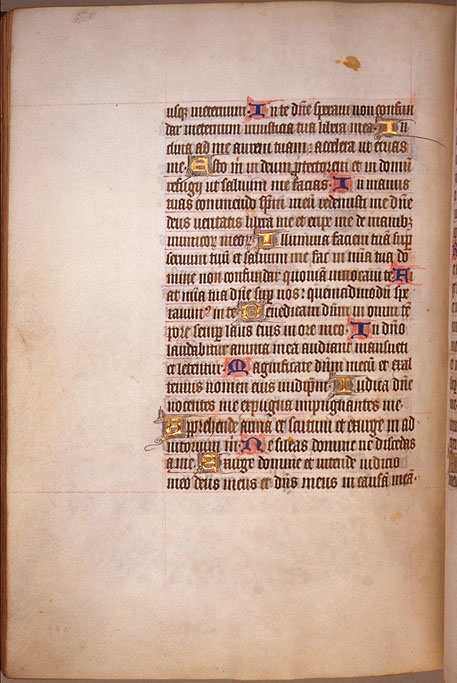 usq; ineternum. In te dñe speraui non confun
dar ineternum iniusticia tua libera me. In
clina ad me aurem tuam: accelera ut eruas
me. Esto m̄ in deum protectorem et in domū
refugij ut saluum me facias. In manus
tuas commendo spm̄ meū redemisti me dñe
deus ueritatis libera me et eripe me de manib;
inimicor meor. Illumina faciem tuā sup
seruum tuū et saluum me fac in mīa tua do
mine non confundar quoniā inuocaui te. Fi
at mīa tua dñe sup nos: quemadmodū spe
rauim⁹ in te. Benedicam dn̄m in omni te
pore semp laus eius in ore meo. In dn̄o
laudabitur anima mea audiant mansueti
et letentur. Magnificate dn̄m mecū et exal
temus nomen eius inidipm̄. Iudica dñe
nocentes me expugna impugnantes me.
Apprehende arma et scutum et exurge in ad
iutorium m̄. Ne sileas domine ne discedas
a me. Exurge domine et intende iudicio
meo deus meus et dn̄s meus in causā meā.